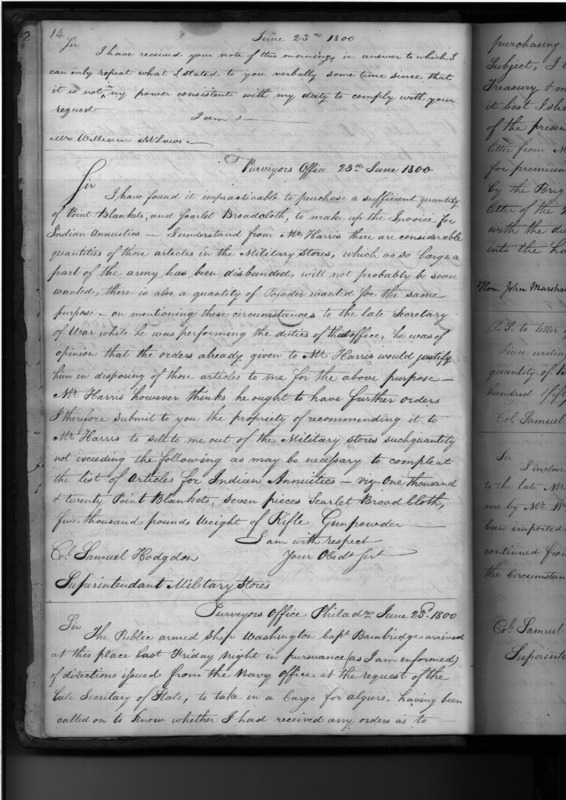 14
June 23rd 1800
Sir
I have received your note of this morning, in answer to which I
can only repeat what I stated to you verbally some time since that
it is not in my power consistent with my duty to comply with your
request
I am
Mr William McLaws
Purveyors Office 23rd June 1800
Sir
I have found it impracticable to purchase a sufficient quantity
of Point Blankets, and Scarlet Broadcloth, to make up the Invoice for
Indian Annuities — I understand from Mr Harris there are considerable
quantities of those articles in the Military Stores, which as so large a
part of the army has been disbanded, will not probably be soon
wanted, there is also a quantity of Powder wanted for the same
purpose — on mentioning these circumstances to the late Secretary
of War while he was performing the duties of that office, he was of
opinion that the orders already given to Mr Harris would justify
him in disposing of those articles to me for the above purpose —
Mr Harris however thinks he ought to have further orders
I therefore submit to you the propriety of recommending it to
Mr Harris to sell to me out of the Military stores such quantity
not exceeding the following as may be necessary to compleat
the list of Articles for Indian Annuities — viz One thousand
& twenty Point Blankets, Seven pieces Scarlet Broad Cloth,
five thousand pounds weight of Rifle Gunpowder
I am with respect
Your Obedt Sert
Col. Samuel Hodgdon
Superintendant Military Stores
Purveyors Office Philada June 23d. 1800
Sir
The Public armed Ship Washington Capt Bainbridge arrived
at this place last Friday night in pursuance (as I am informed)
of directions issued from the Navy Office at the request of the
late Secretary of State, to take in a Cargo for Algiers. having been
called on to know whether I had received any orders as to
purchasing
Subject, I
Treasury I m
it best I sho
of the presen
letter from M
for premium
by the Brig
letter of the
with the du
into the ha
Hon. John Marshal
P.S. to letter
Since writing
quantity of
hundred fift
Col Samuel
Sir
I inclose
to the late Mr
me by Mr
been imported
continued from
the circumstan
Col. Samuel
Superinte